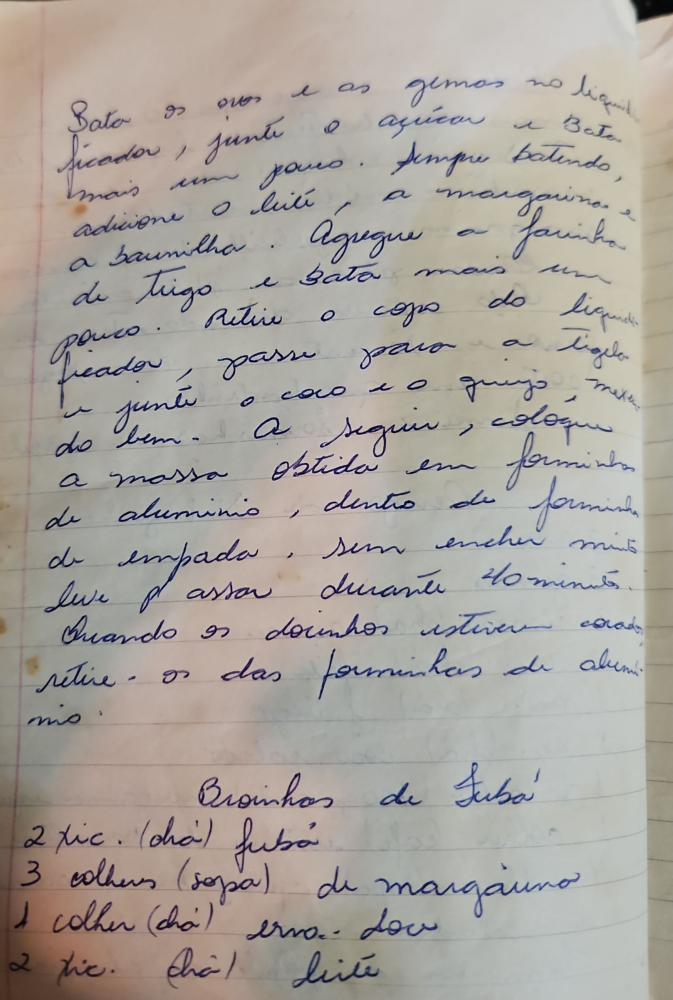 Bata os ovos e as gemas no liquidi-
ficador, junte o açúcar e Bata
mais um pouco. Sempre batendo,
adicione o leite, a margarina e
a baunilha. Agregue a farinha
de trigo e Bata mais um
pouco. Retire o copo do liquidi-
ficador, passe para a tigela
e junte o coco e o queijo, mexen-
do bem. A seguir, coloque
a massa obtida em forminhas
de aluminio, dentro de forminha
de empada. Sem encher muito
leve p/ assar durante 40 minutos.
Quando os docinhos estiverem corados,
retire-os das forminhas de alumi-
nio.
Broinhas de Fubá
2 xic. (chá) fubá
3 colheres (sopa) de margarina
1 colher (chá) erva-doce
2 xic. (chá) leite